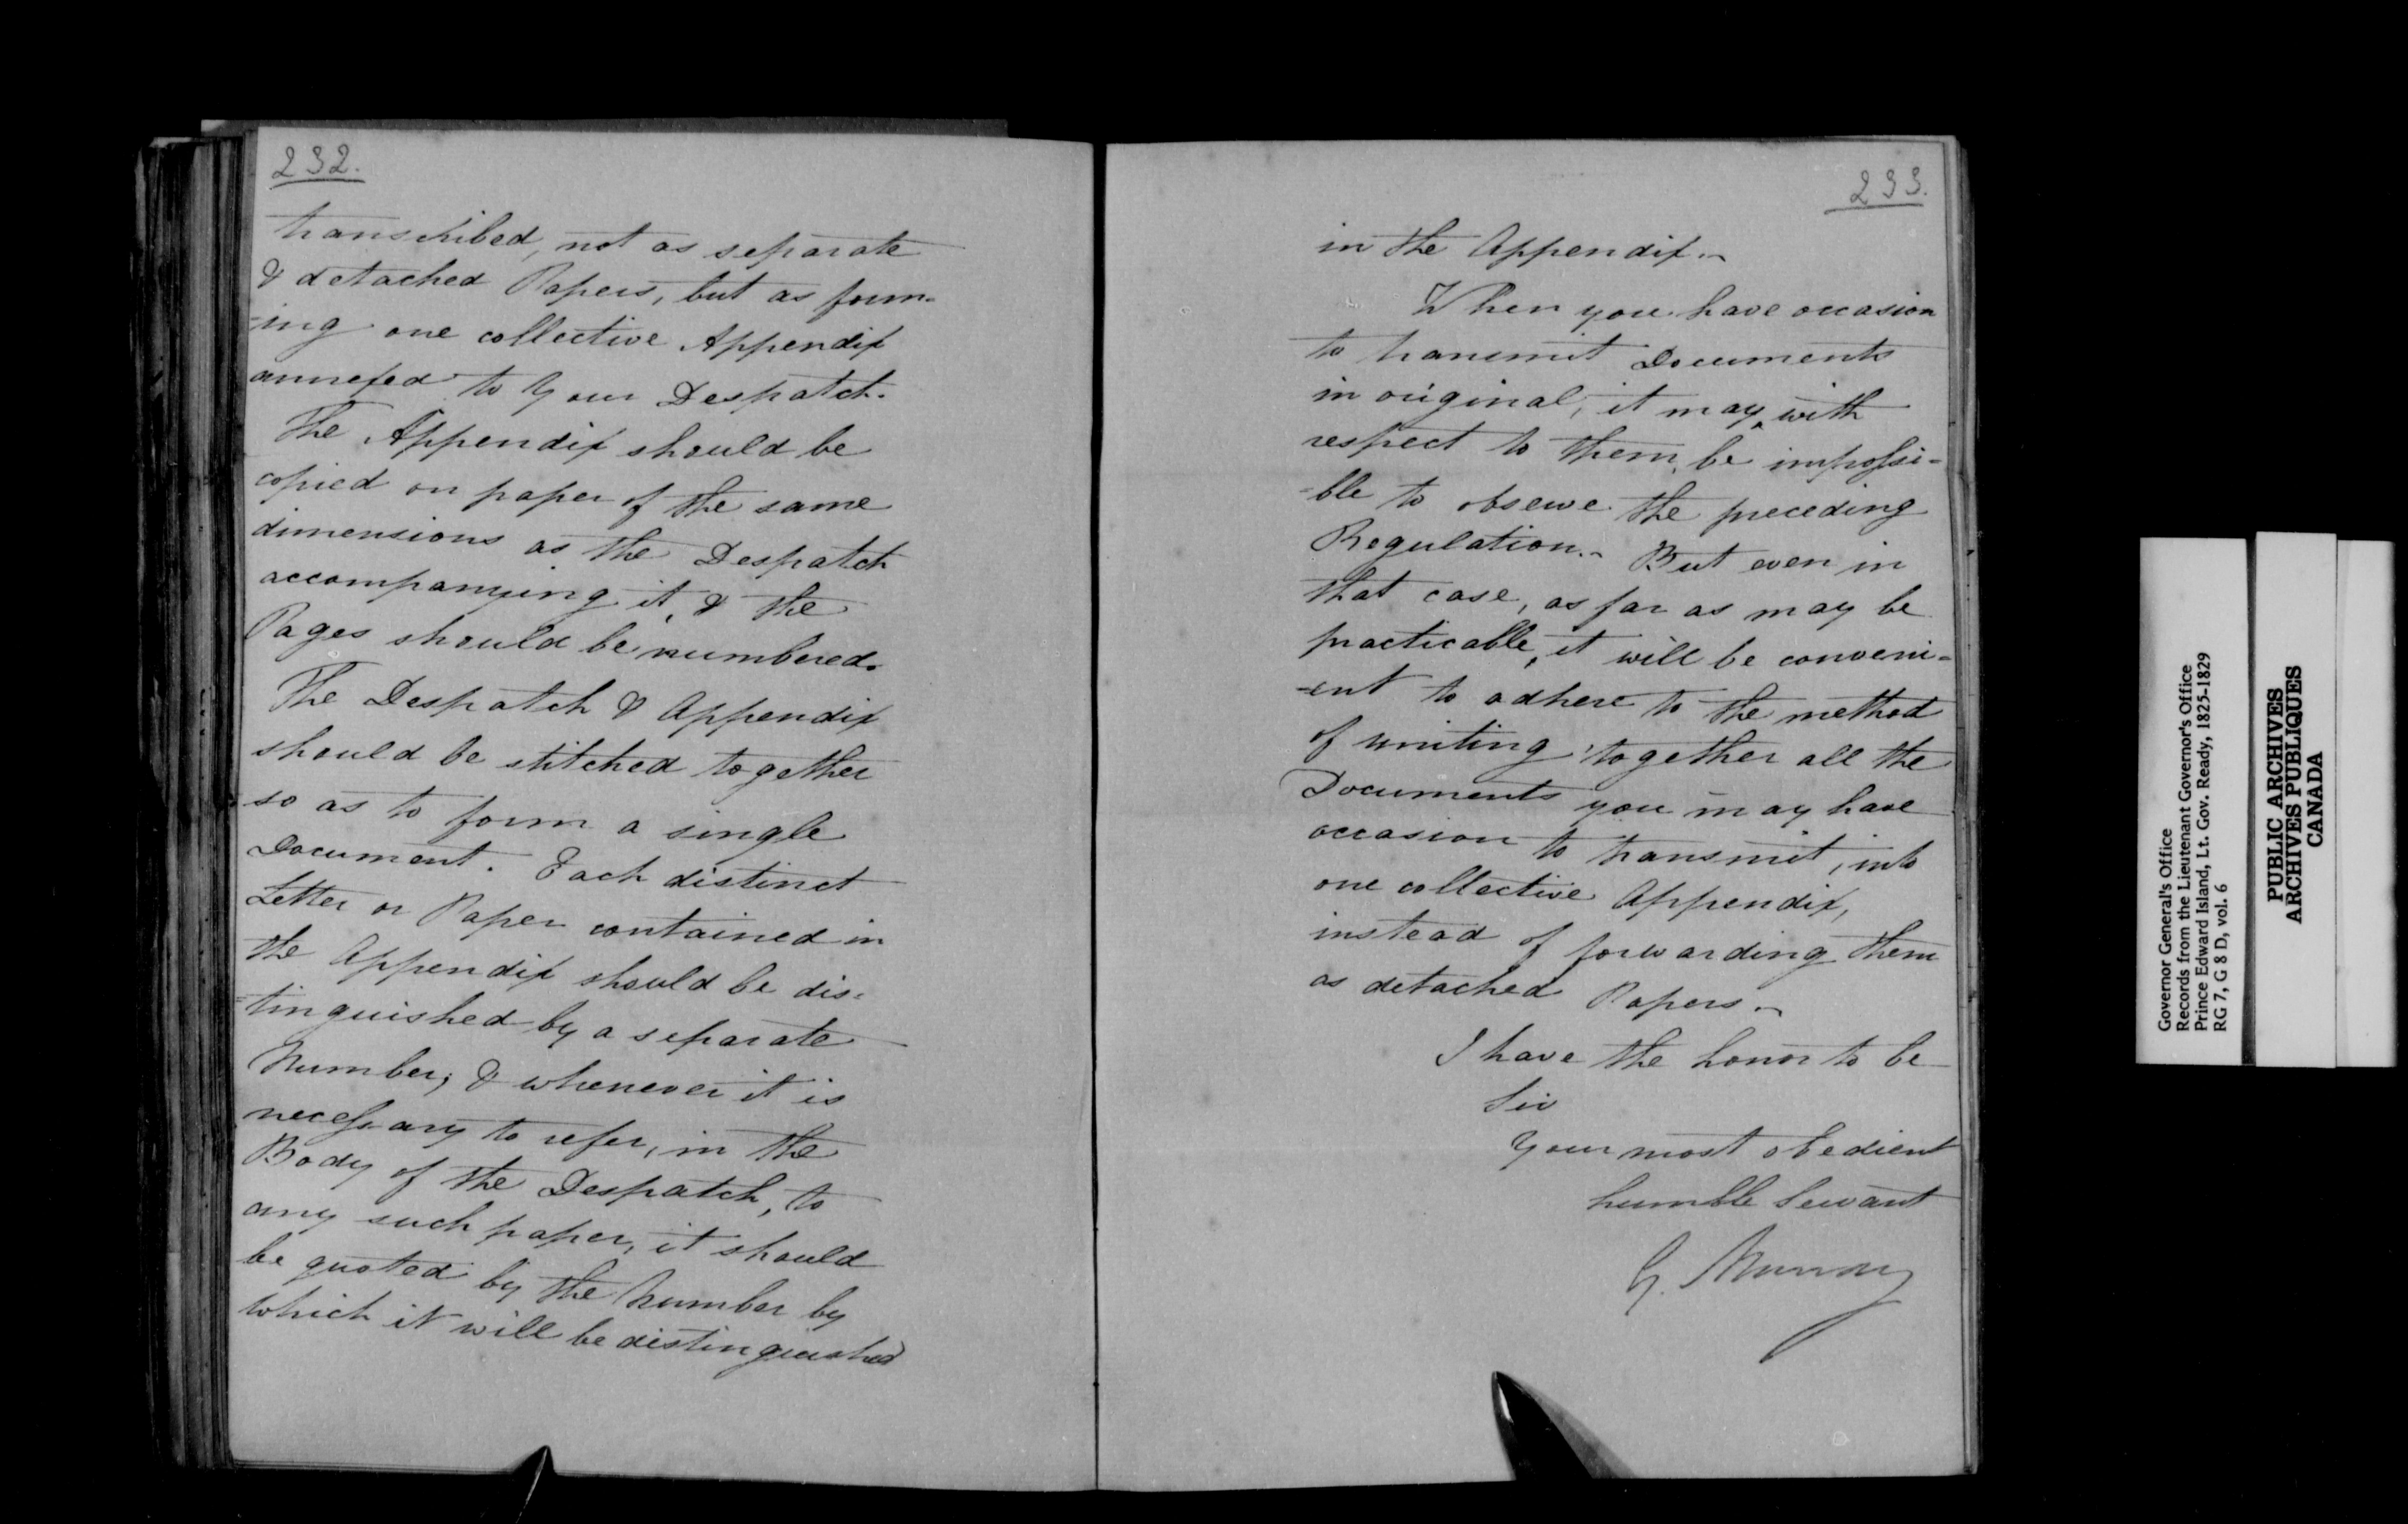 232.
transcribed, not as separate
& detached Papers, but as form-
-ing one collective Appendix
annexed to Your Despatch.
The Appendix should be
copied on paper of the same
dimensions as the Despatch
accompanying it, & the
Pages should be numbered.
The Despatch & Appendix
should be stitched together
so as to form a single
Document. Each distinct
Letter or Paper contained in
the Appendix should be dis-
-tinguished by a separate
Number; & whenever it is
necessary to refer, in the
Body of the Despatch, to
any such paper, it should
be quoted by the Number by
which it will be distinguished
233.
in the Appendix.~
When you have occasion
to transmit Documents
in original, it may, with
respect to them, be impossi-
-ble to observe the preceding
Regulation.~ But even in
that case, as far as may be
practicable, it will be conveni-
-ent to adhere to the method
of uniting together all the
Documents you may have
occasion to transmit, into
one collective Appendix,
instead of forwarding them
as detached Papers.~
I have the honor to be
Sir
Your most obedient
humble Servant
G. Murray
Governor General's Office
Records from the Lieutenant Governor's Office
Prince Edward Island, Lt. Gov. Ready, 1825-1829
RG 7, G 8 D, vol. 6
PUBLIC ARCHIVES
ARCHIVES PUBLIQUES
CANADA